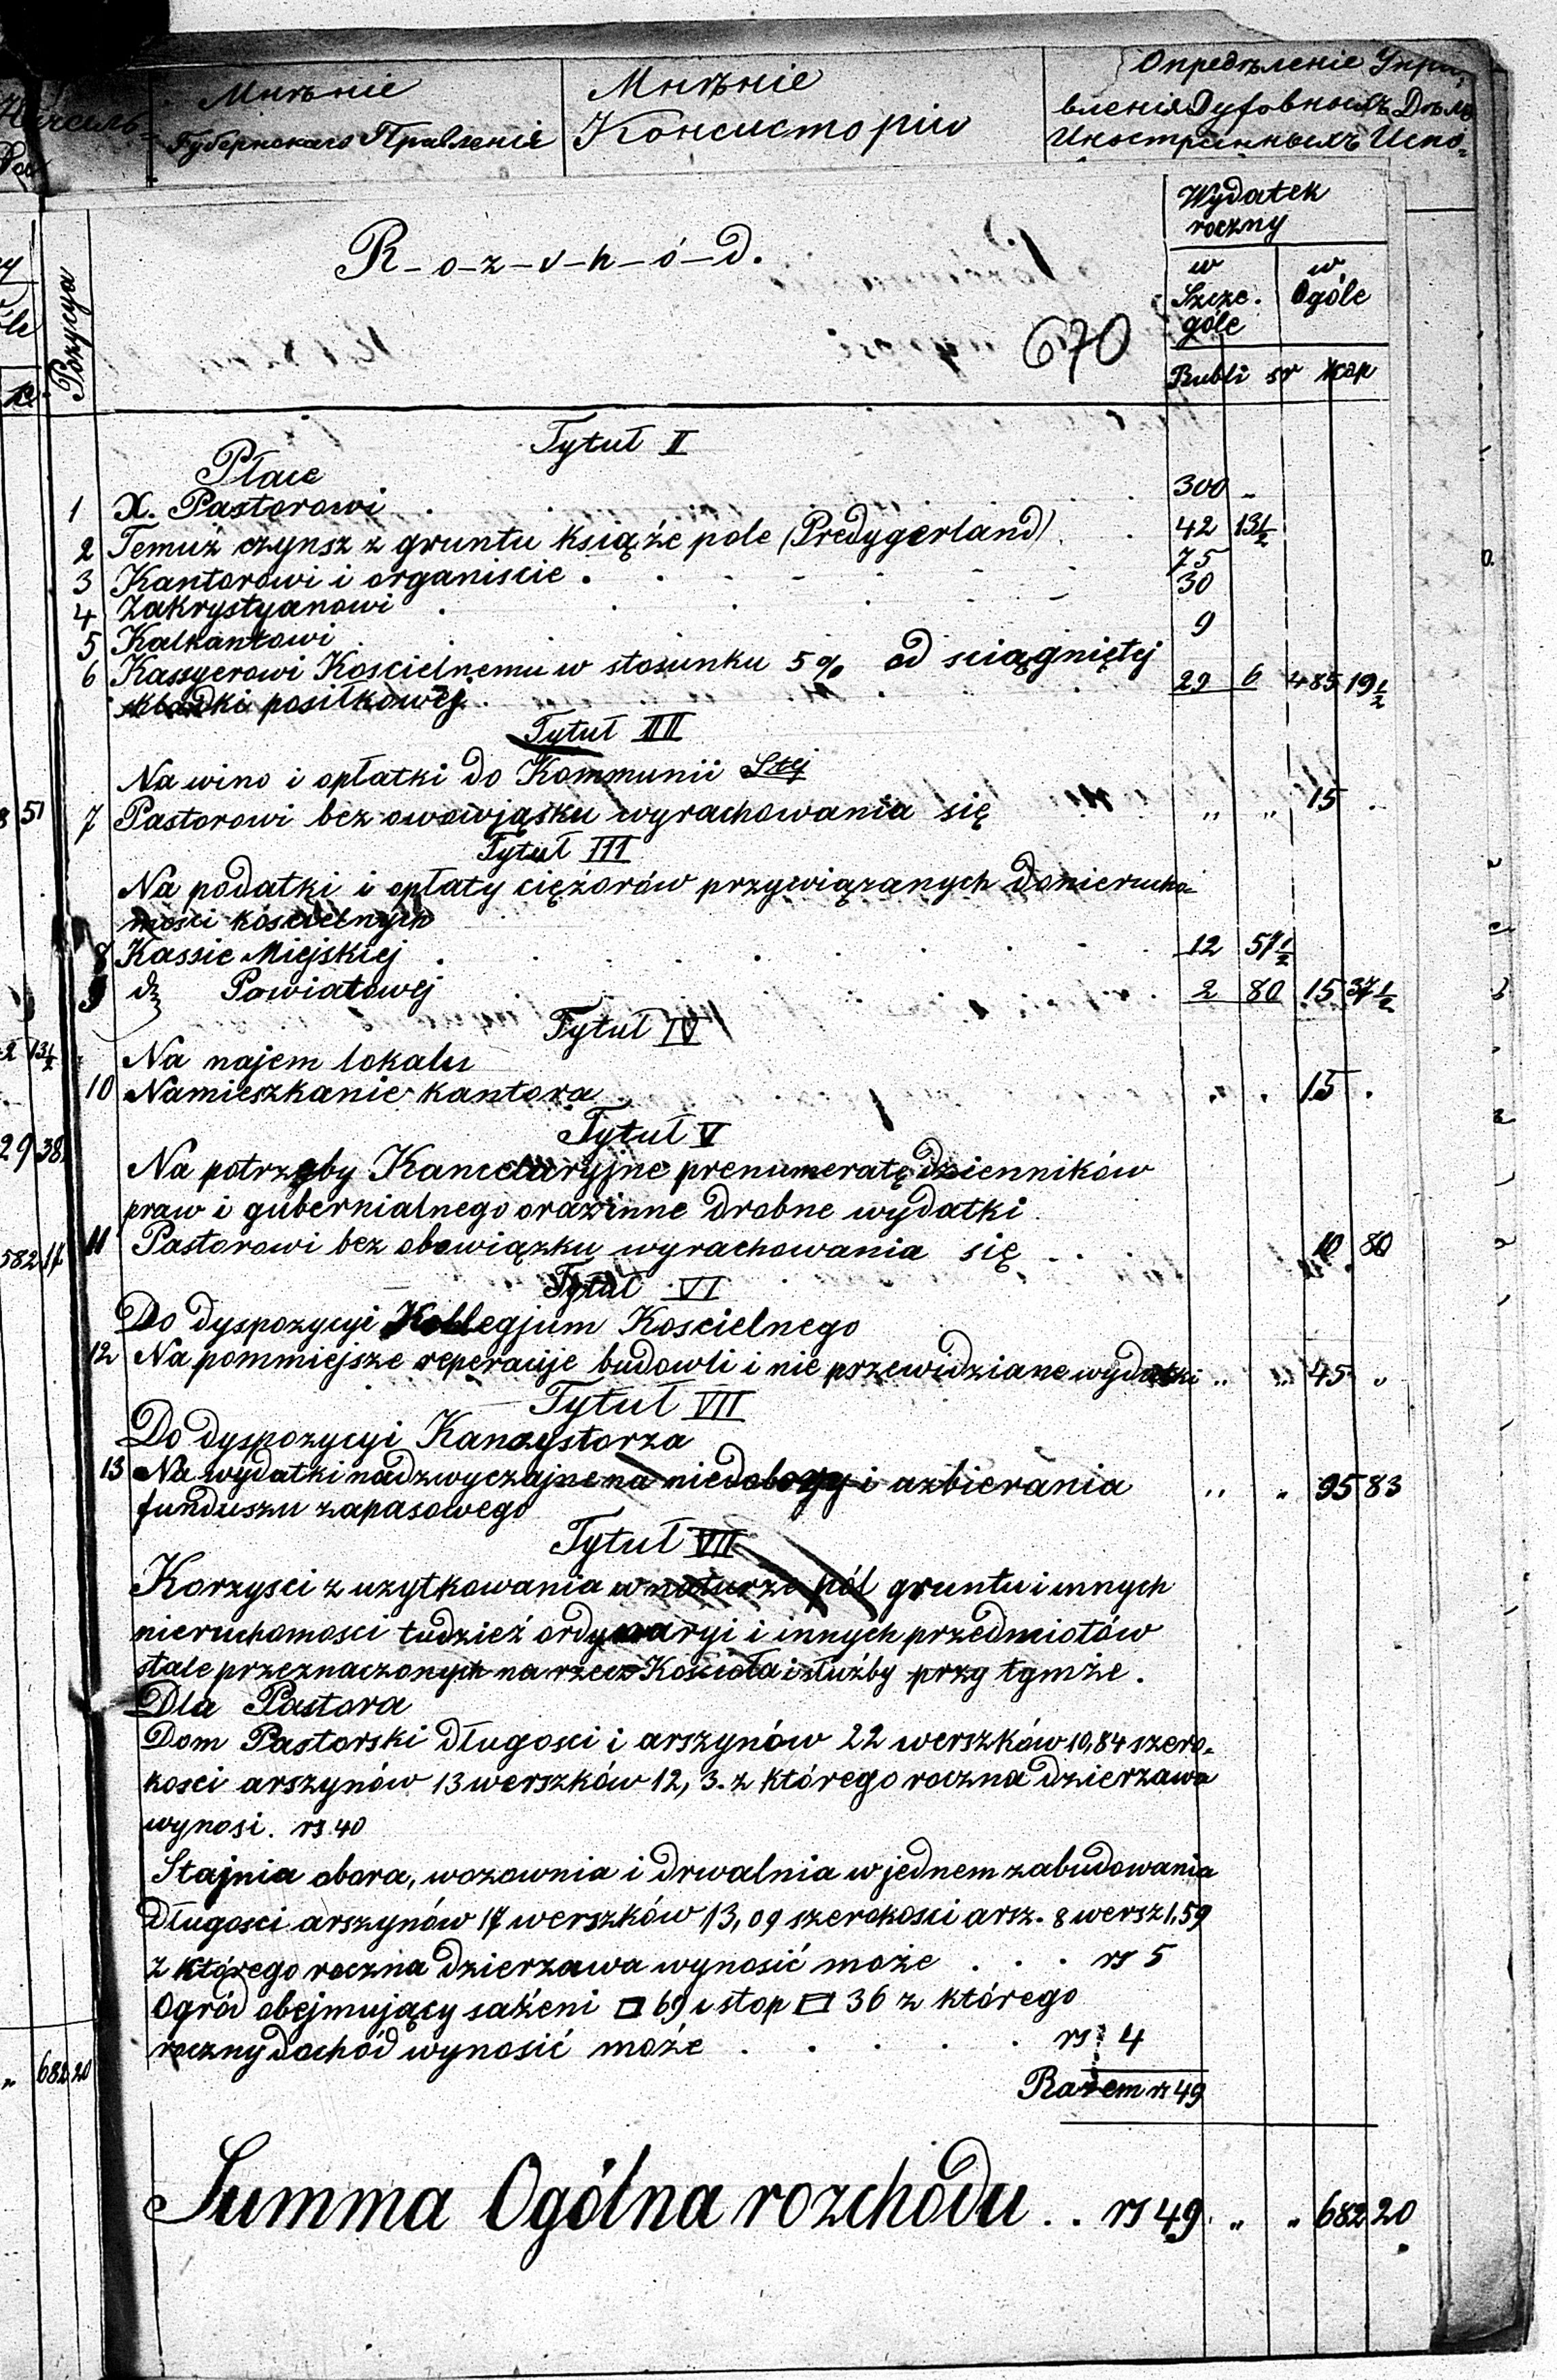 Мнѣніе
Губернскаго Правленія
Мнѣніе
Консисторіи
Опредѣленіе Упра-
вленія Духовныхъ Дѣлъ
Иностранныхъ Испо-
Pozycya
R-o-z-c-h-ó-d.
670
Wydatek
roczny
w
Szcze.
góle
w
Ogóle
Rubli sr kop
Tytuł II
Płace
1 X. Pastorowi 300 „
2 Temuż czynsz z gruntu książe pole (Predygerland) 42 13½
3 Kantorowi i organiscie 75
4 Zakrystyanowi 30
5 Kalkantowi 9
6 Kassyerowi Koscielnemu w stosunku 5% od sciągniętej
składki posilkowej 29 6 485 19½
Tytuł III
Na wino i opłatki do Kommunii Stej
7 Pastorowi bez owowjąsku wyrachowania się „ „ 15 „
Tytuł III
Na podatki i opłaty ciężorów przywiązanych donierucho-
mosci kościelnych
8 Kassie Miejskiej 12 57½
9 dz Powiatowej 2 80 15 37½
Tytuł IV
Na najem lokalu
10 Namieszkanie kantora „ . 15 .
Tytuł V
Na potrzeby Kancelaryjne prenumeratę dzienników
praw i gubernialnego orazinne drobne wydatki
11 Pastorowi bez obowiązku wyrachowania się 10 80
Tytuł VI
Do dyspozycyi Kollegjum Koscielnego
12 Na pommiejsze reperacije budowli i nie przewidziane wydatki „ „ 45 „
Tytuł VII
Do dyspozycyi Kanzystorza
13 Na wydatki nadzwyczajne na niedobory i azbierania
funduszu zapasowego „ „ 95 83
Tytuł VII
Korzysci z uzytkowania w naturze pól gruntu i innych
nieruchomosci tudzież ordynaryi i innych przedmiotów
stale przeznaczonych na rzecz Kościoła i służby przy tymże.
Dla Pastora
Dom Pastorski długosci i arszynów 22 werszków 10,84 szero-
kosci arszynów 13 werszków 12,3. z którego roczna dzierzawa
wynosi. rs 40
Stajnia obora, wozownia i drwalnia w jednem zabudowania
długosci arszynów 17 werszków 13,09 szerokosci arsz. 8 wersz 1,59
z którego roczna dzierzawa wynosić może . . . rs 5
Ogród obejmujący sażeni □ 69 i stop □ 36 z którego
roczny dochód wynosić może . . . . . rs 4
Razem rs 49
Summa Ogólna rozchodu . . rs 49 „ „ 682 20